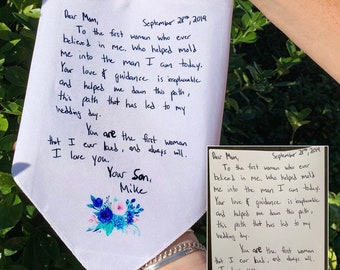 Dear Mom, September 28th, 2019
To the first woman who ever
believed in me. Who helped mold
me into the man I am today.
Your love & guidance is irreplaceable
and helped me down this path,
this path that has led to my
wedding day.
You are the first woman
that I ever loved, and always will.
I love you.
Your Son,
Mike
Dear Mom, September 28th, 2019
To the first woman who ever
believed in me. Who helped mold
me into the man I am today.
Your love & guidance is irreplaceable
and helped me down this path,
this path that has led to my
wedding day.
You are the first woman
that I ever loved, and always will.
I love you.